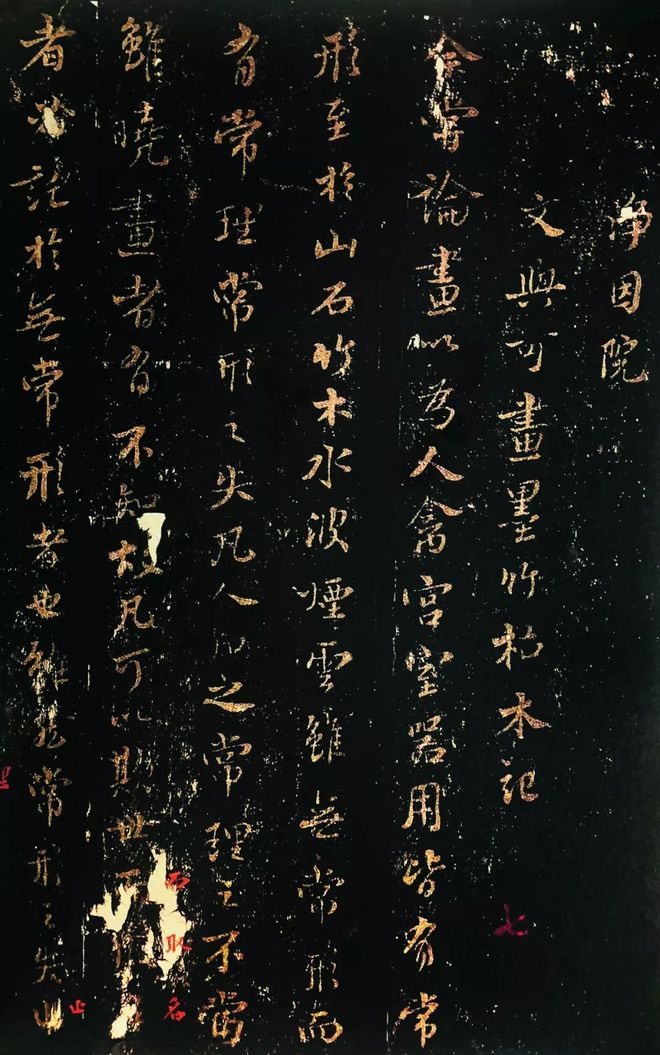 淨因院
文與可畫墨竹枯木記
余嘗論畫以為人禽宮室器用皆有常
形至於山石竹木水波煙雲雖無常形而
有常理常形之失凡人所知之常理之不當
雖曉畫者有不知故凡可以欺世而取名
者必託於無常形者也雖然常形之失止
七
而取名
止